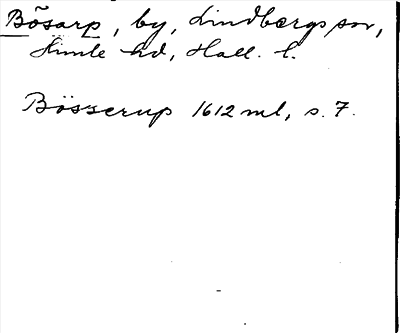 Bösarp, by, Lindbergs sn,
Himle hd, Hall. l.
Bösserup 1612 ml, s. 7.